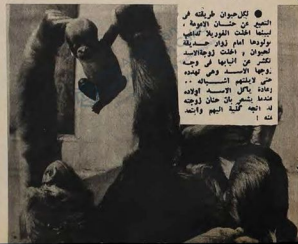 ● لكل حيوان طريقته في
التعبير عن حنان الامومة ،
فبينما اخذت الغوريلا تداعب
مولودها أمام زوار حديقة
الحيوان ، اخذت زوجة الاسد
تكشر عن أنيابها في وجه
زوجها الاسد وهي تهدده
حتى لا يلتهم أشباله ..
وعادة يأكل الاسد أولاده
عندما يشعر بأن حنان زوجته
قد اتجه كلية اليهم وابتعد
عنه !